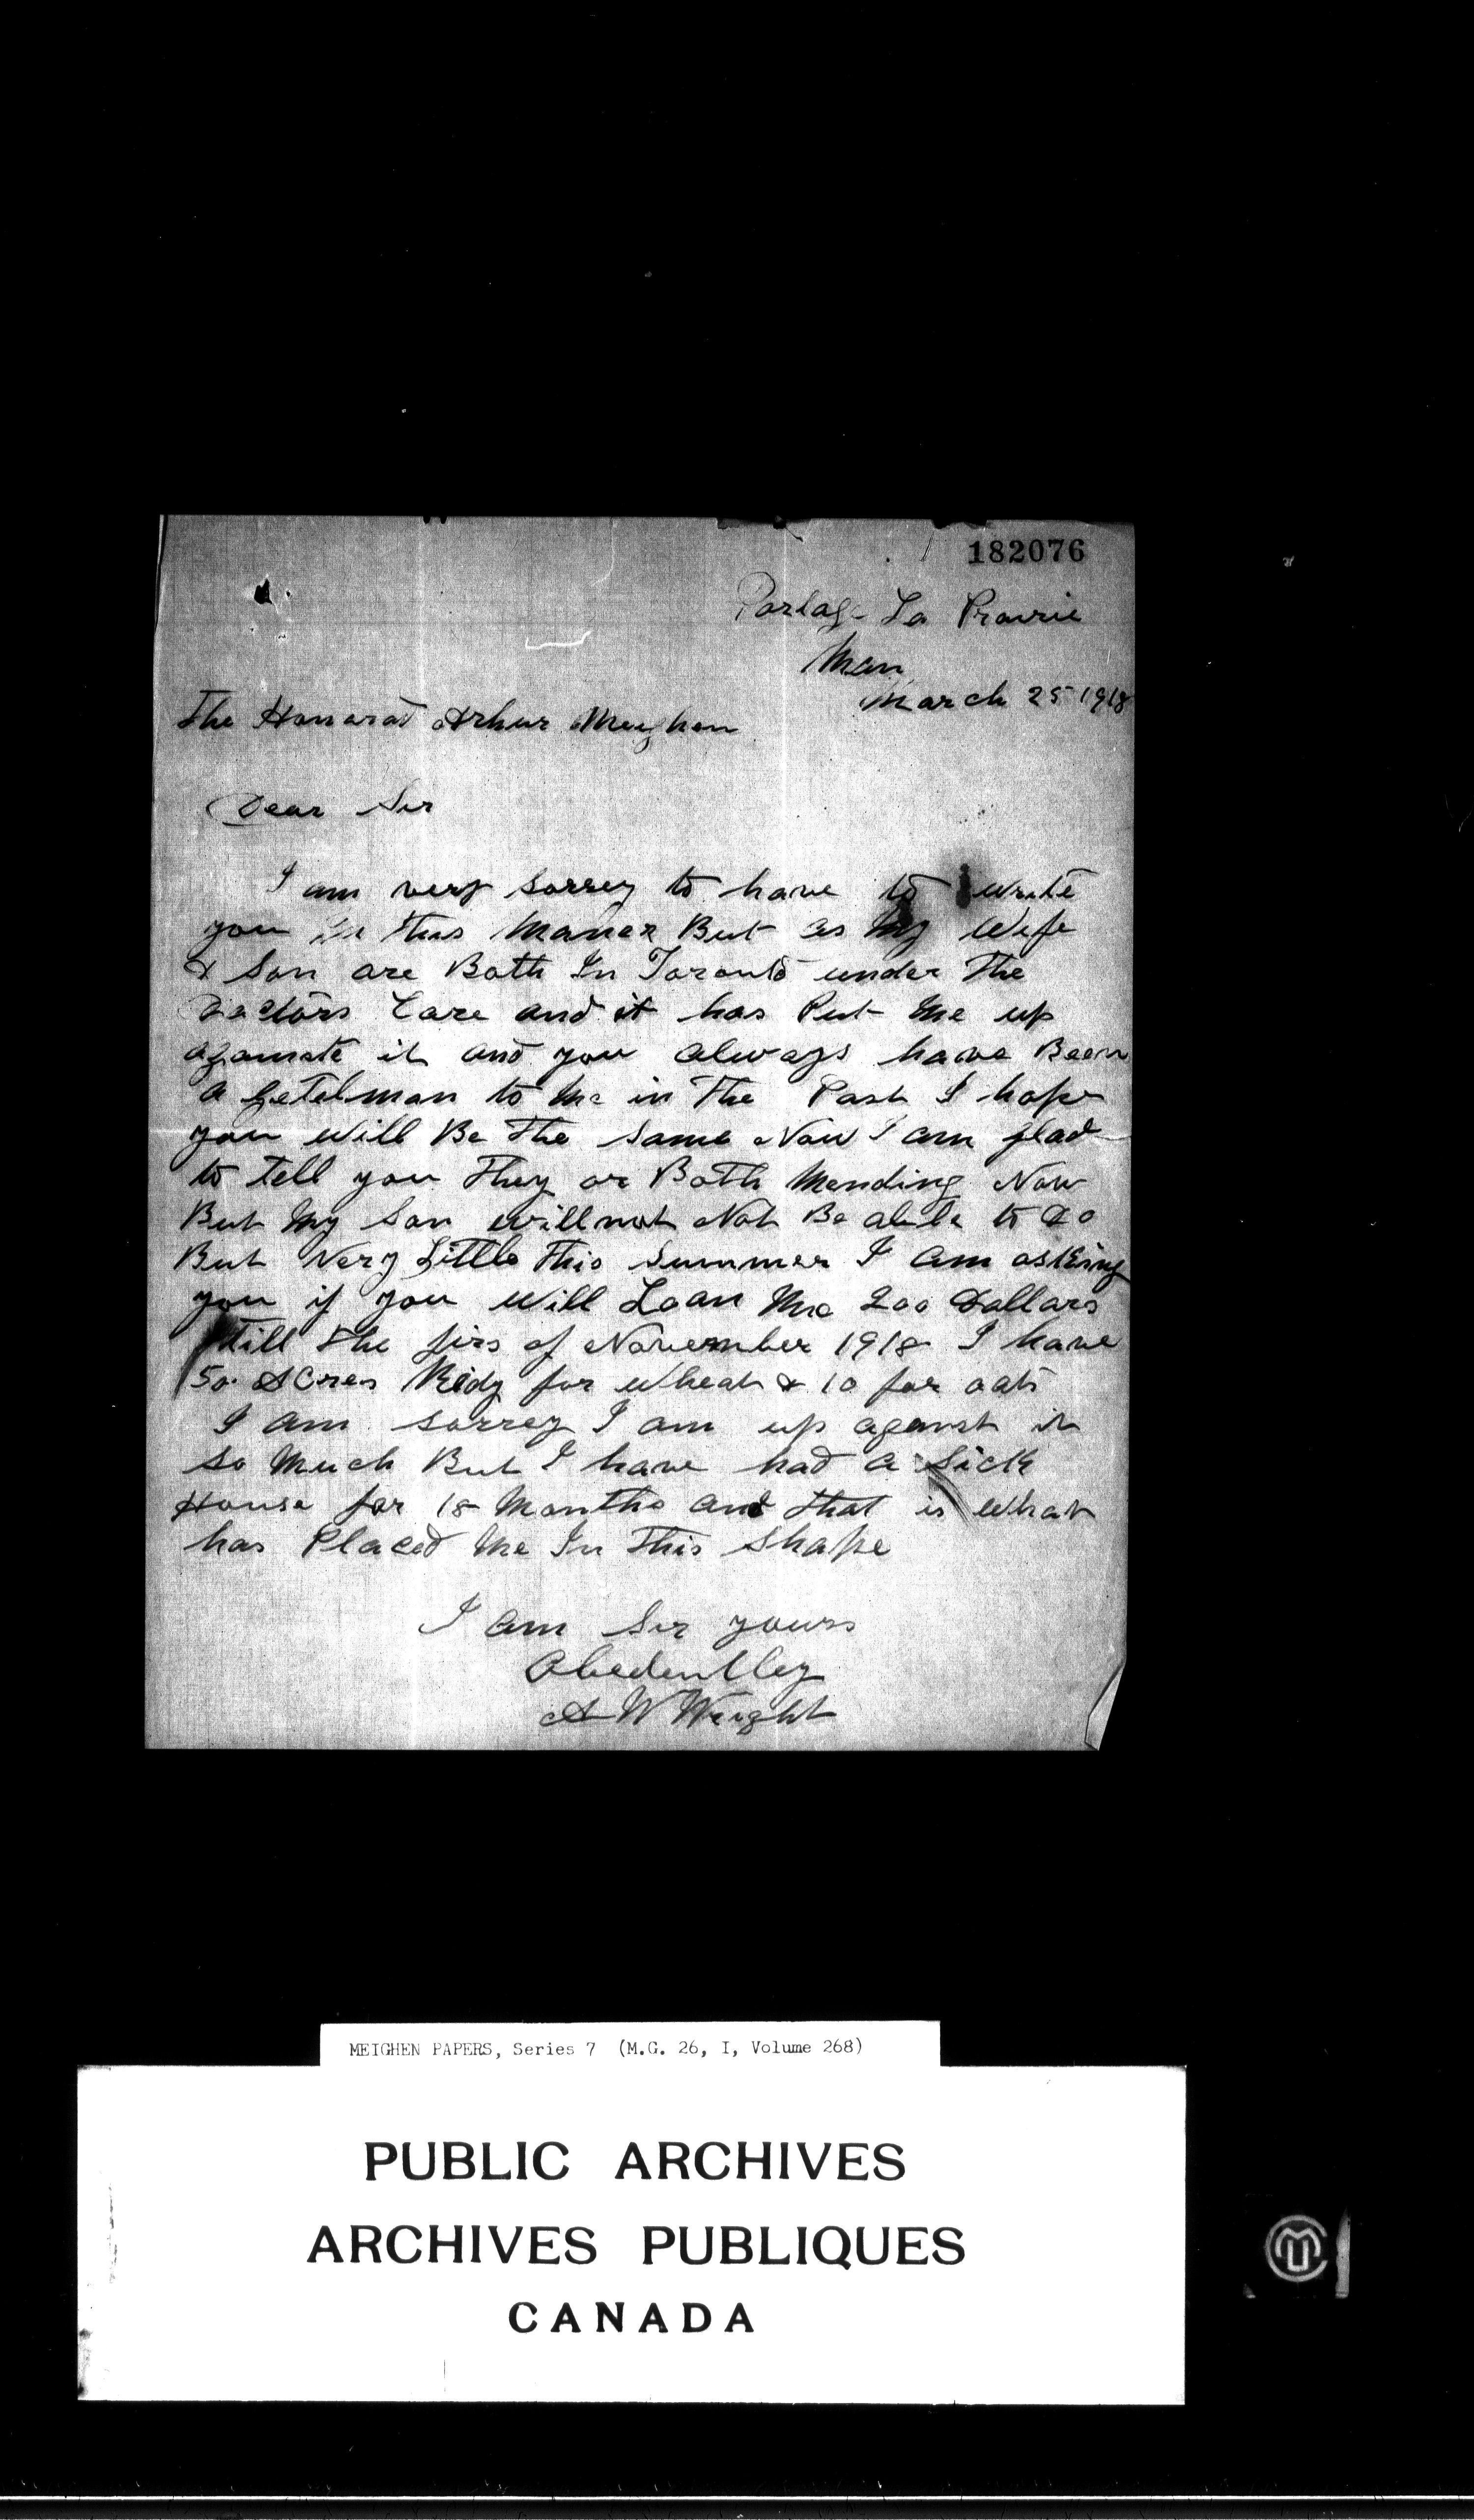 182076
Portage La Prairie
Man
March 25 1918
The Honarad Arhur Meighen
Dear Sir
I am very sorrey to have to write
you In this Maner But as My Wife
& Son are Both In Toronto under The
Doctors Care and it has Put Me up
againste it and you always have Been
a getelman to Me in The Past I hope
you will Be The Same Now I am glad
to tell you They ar Both Mending Now
But My Son will not Not Be able to do
But Very Little This Summer I am asking
you if you Will Loan Me 200 Dollars
till the firs of November 1918 I have
50 Acres Ridy for Wheat & 10 for oats
I am sorrey I am up against it
so Much But I have had a Sick
House for 18 Months and that is what
has Placed Me In This Shape
I am Sir yours
Abedentley
A W Wright
MEIGHEN PAPERS, Series 7 (M.G. 26, I, Volume 268)
PUBLIC ARCHIVES
ARCHIVES PUBLIQUES
CANADA